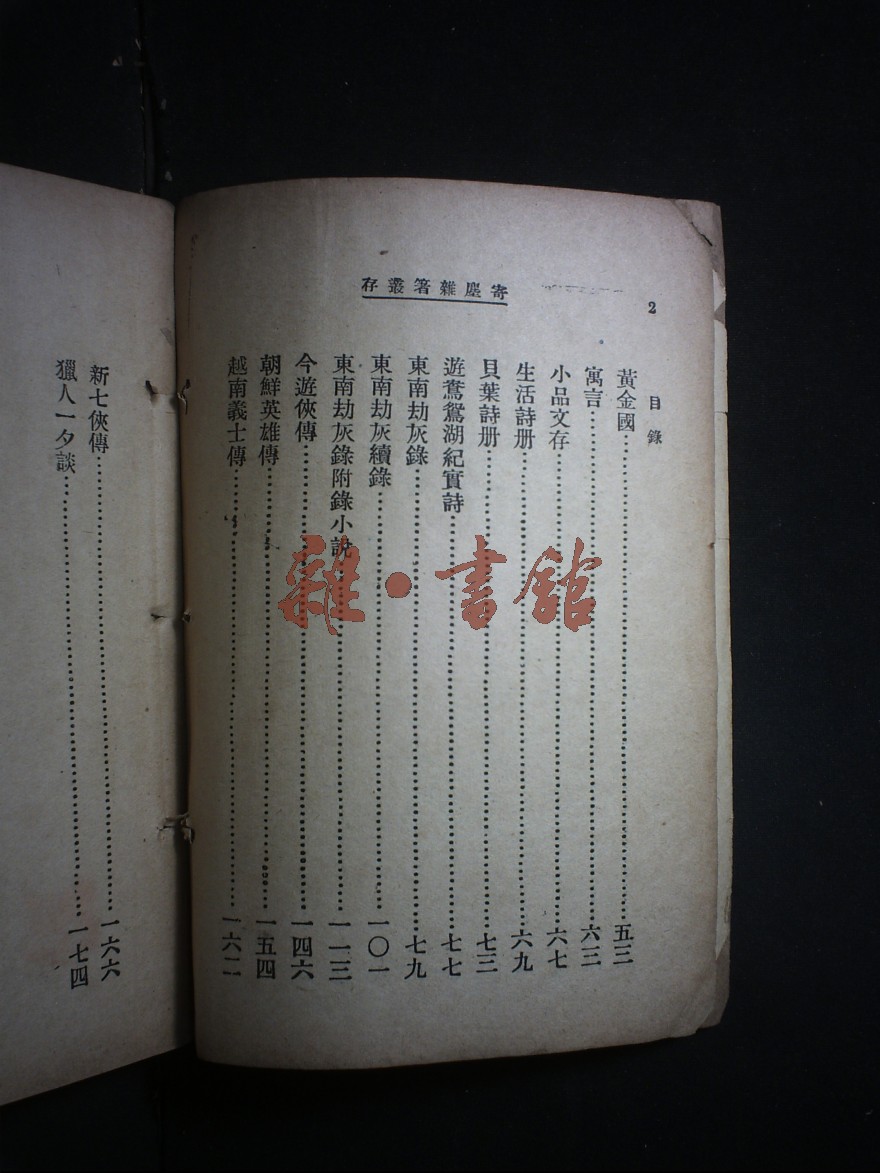 寄塵雜著叢存
2
目錄
黃金國……五三
寓言……六三
小品文存……六七
生活詩册……六九
貝葉詩册……七三
遊鴛鴦湖紀實詩……七七
東南劫灰錄……七九
東南劫灰續錄……一〇一
東南劫灰錄附錄小說……一一三
今遊俠傳……一四六
朝鮮英雄傳……一五四
越南義士傳……一六二
新七俠傳……一六六
獵人一夕談……一七四
雜·書館